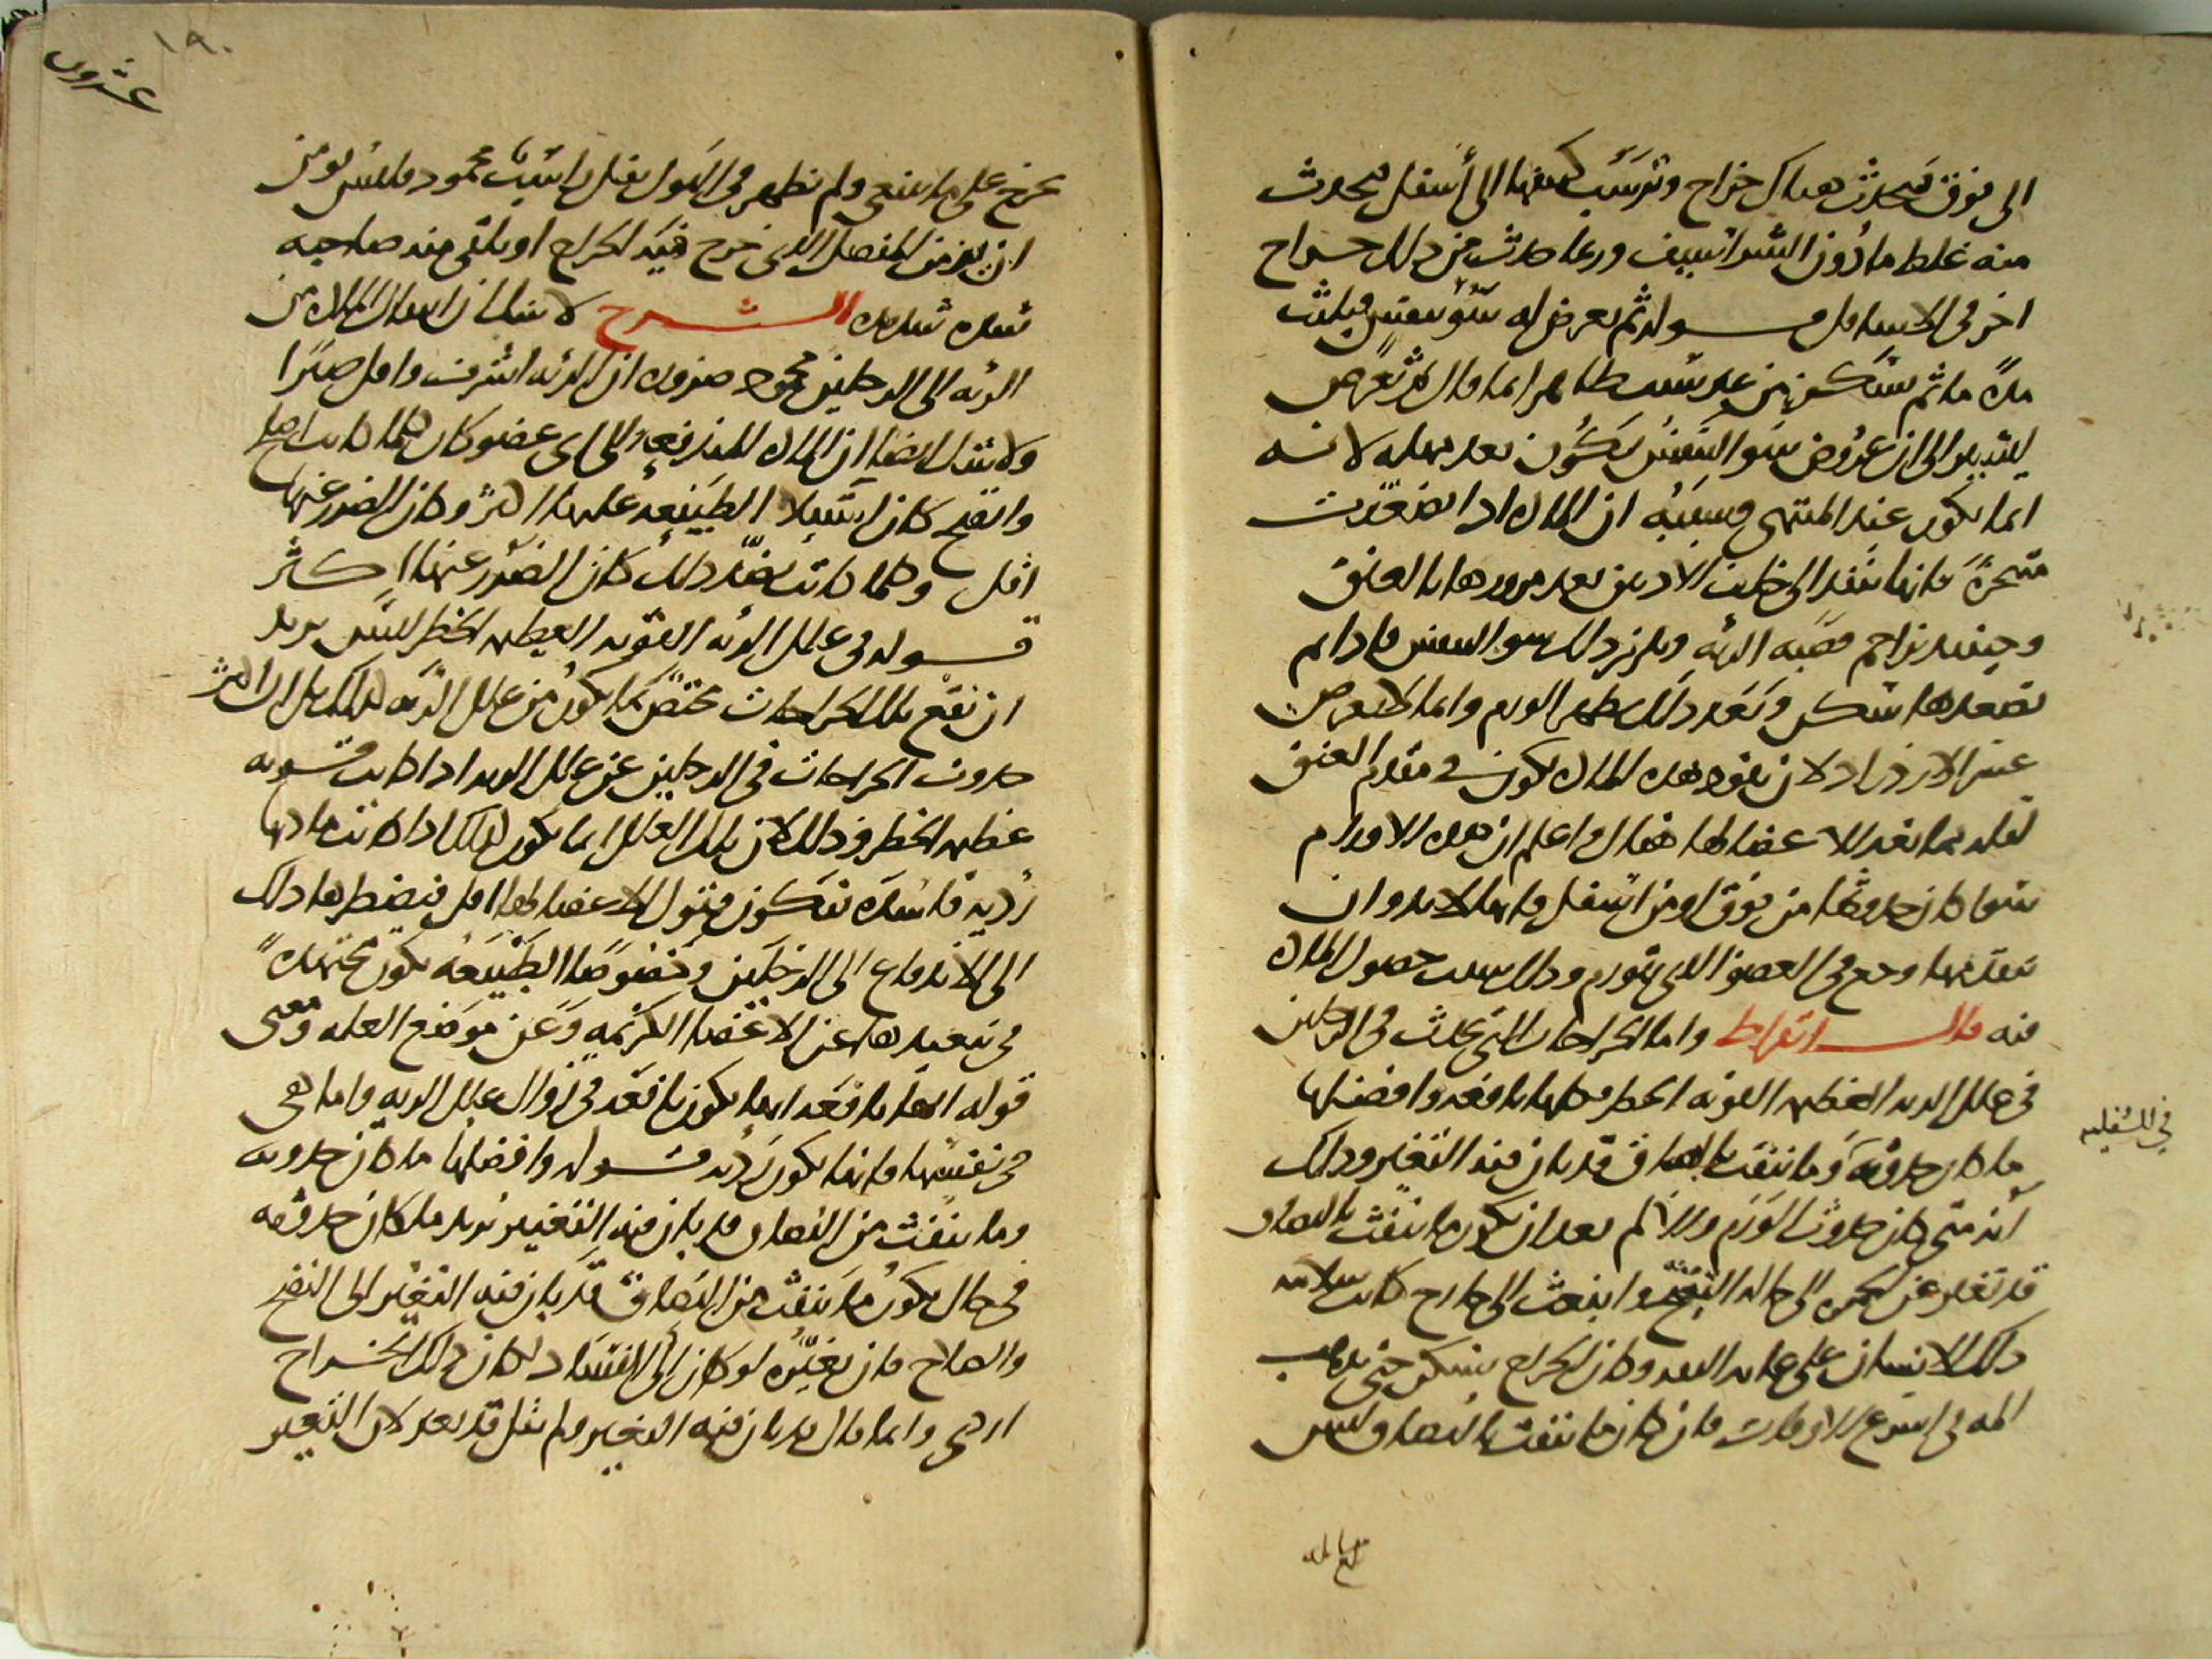 الى فوق فيحدث هناك خراج وترسب بعضها الى أسفل فيحدث
منه غلظ ما دون الشراسيف وربما حدث من ذلك خراج
اخر في الاسافل قوله ثم يعرض له سوء تنفس فيلبث
مدة ما ثم يسكن من غير سبب ظاهر انما قال ثم يعرض
لينبه الى ان عروض سوء التنفس يكون بعد مهلة لانه
انما يكون عند المنتهى وسببه ان المادة اذا تصعدت
متحركة فانها تنفذ الى خلف الاذنين بعد مرورها بالعنق
وحينئذ تزاحم قصبة الرئة ويلزم ذلك سوء التنفس فاذا تم
تصعدها سكن وبعد ذلك يظهر الورم وانما لا يعرض
عسر الازدراد لان نفوذ هذه المادة يكون في مقدم العنق
قوله فيما بعد الاعضا لها فقال واعلم ان هذه الاورام
سوا كان حدوثها من فوق او من اسفل فانها لا بد وان
يتقدمها وجع في العضو الذي يتورم وذلك بسبب حصول المادة
فيه قال ابقراط واما الخراجات التي تحدث في الرجلين
في علل الرئة العظيمة القوية الخطر فكلها نافعة وافضلها
ما كان حدوثه وما ينفث بالبصاق قد بان فيه التغير وذلك
أنه متى كان حدوث الورم والألم بعد ان يكون ما ينفث بالبصاق
قد تغير عن الحمرة الى حال التقيح وانبعث الى خارج كانت سلامة
ذلك الانسان على غاية الثقة وكان الخراج يسكن حتى يذهب
المه في اسرع الاوقات فان كان ما ينفث بالبصاق ليس
في السفلية
١٩٠
عشرون
يخرج على ما ينبغي ولم يظهر في البول ثفل راسب محمود فليس يومن
ان يزمن المفصل الذي خرج فيه الخراج او يلقى منه صاحبه
شدة شديدة الشرح لا شك ان انتقال المادة من
الرئة الى الرجلين محمود ضرورة ان الرئة اشرف واقل صبرا
ولا شك ايضا ان المادة المندفعة الى اي عضو كان كلما كانت اصلح
وانضج كان استيلا الطبيعة عليها اكثر وكان الضرر عنها
اقل وكلما كانت بضد ذلك كان الضرر عنها اكثر
قوله في علل الرئة القوية العظيمة الخطر ليس يريد
ان نفع تلك الخراجات مختص بما يكون من علل الرئة كذلك بل ان اكثر
حدوث الخراجات في الرجلين عن علل الرية اذا كانت قوية
عظيمة الخطر وذلك لان تلك العلل انما يكون كذلك اذا كانت مادتها
ردية فاسدة فتكون قبول الاعضا لها اقل فيضطرها ذلك
الى الاندفاع الى الرجلين وخصوصا الطبيعة تكون مجتهدة
في تبعيدها عن الاعضا الكريمة وعن موضع العلة ومعنى
قوله انها نافعة انها تكون نافعة في زوال علل الرية واما هي
في نفسها فانها تكون ردية قوله وافضلها ما كان حدوثه
وما ينفث من البصاق قد بان فيه التغيير يريد ما كان حدوثه
في حال يكون ما ينفث من البصاق قد بان فيه التغير الى النضج
والصلاح فان تغيره لو كان الى الفساد لكان ذلك الخراج
اردى وانما قال قد بان فيه التغير ولم يقل قد تغير لان التغير